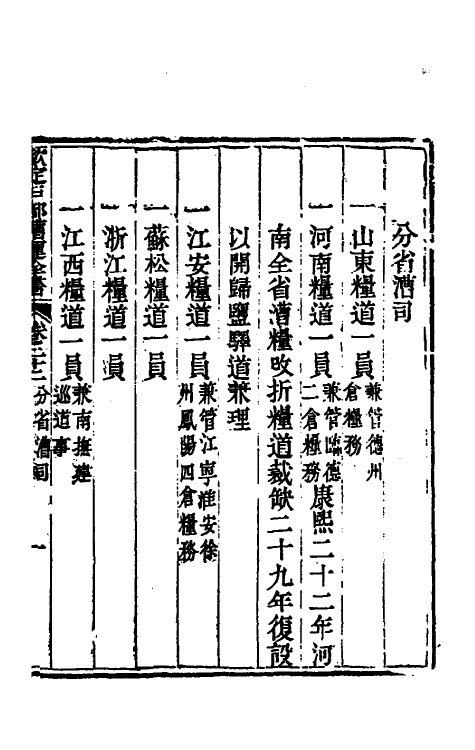 分省漕司
一山東糧道一員兼管德州倉糧務
一河南糧道一員兼管臨德二倉糧務康熙二十二年河
南全省漕糧改折糧道裁缺二十九年復設
以開歸鹽驛道兼理
一江安糧道一員兼管江寧淮安徐州鳳陽四倉糧務
一蘇松糧道一員
一浙江糧道一員
一江西糧道一員兼南撫建巡道事
欽定戶部漕運全書 卷二十二 分省漕司 一